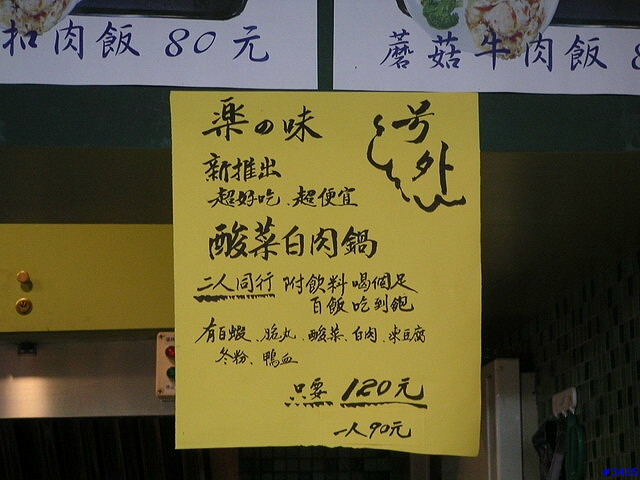 扣肉飯 80元
蘑菇牛肉飯 8
楽の味
号外
新推出
超好吃、超便宜
酸菜白肉鍋
二人同行 附飲料喝個足
百飯吃到飽
有白蝦、脆丸、酸菜、白肉、凍豆腐
冬粉、鴨血
只要 120元
一人90元